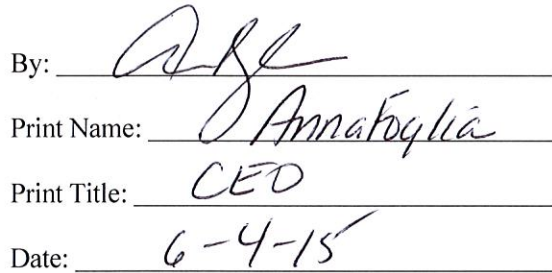 By:
Print Name: Anna Foglia
Print Title: CEO
Date: 6-4-15